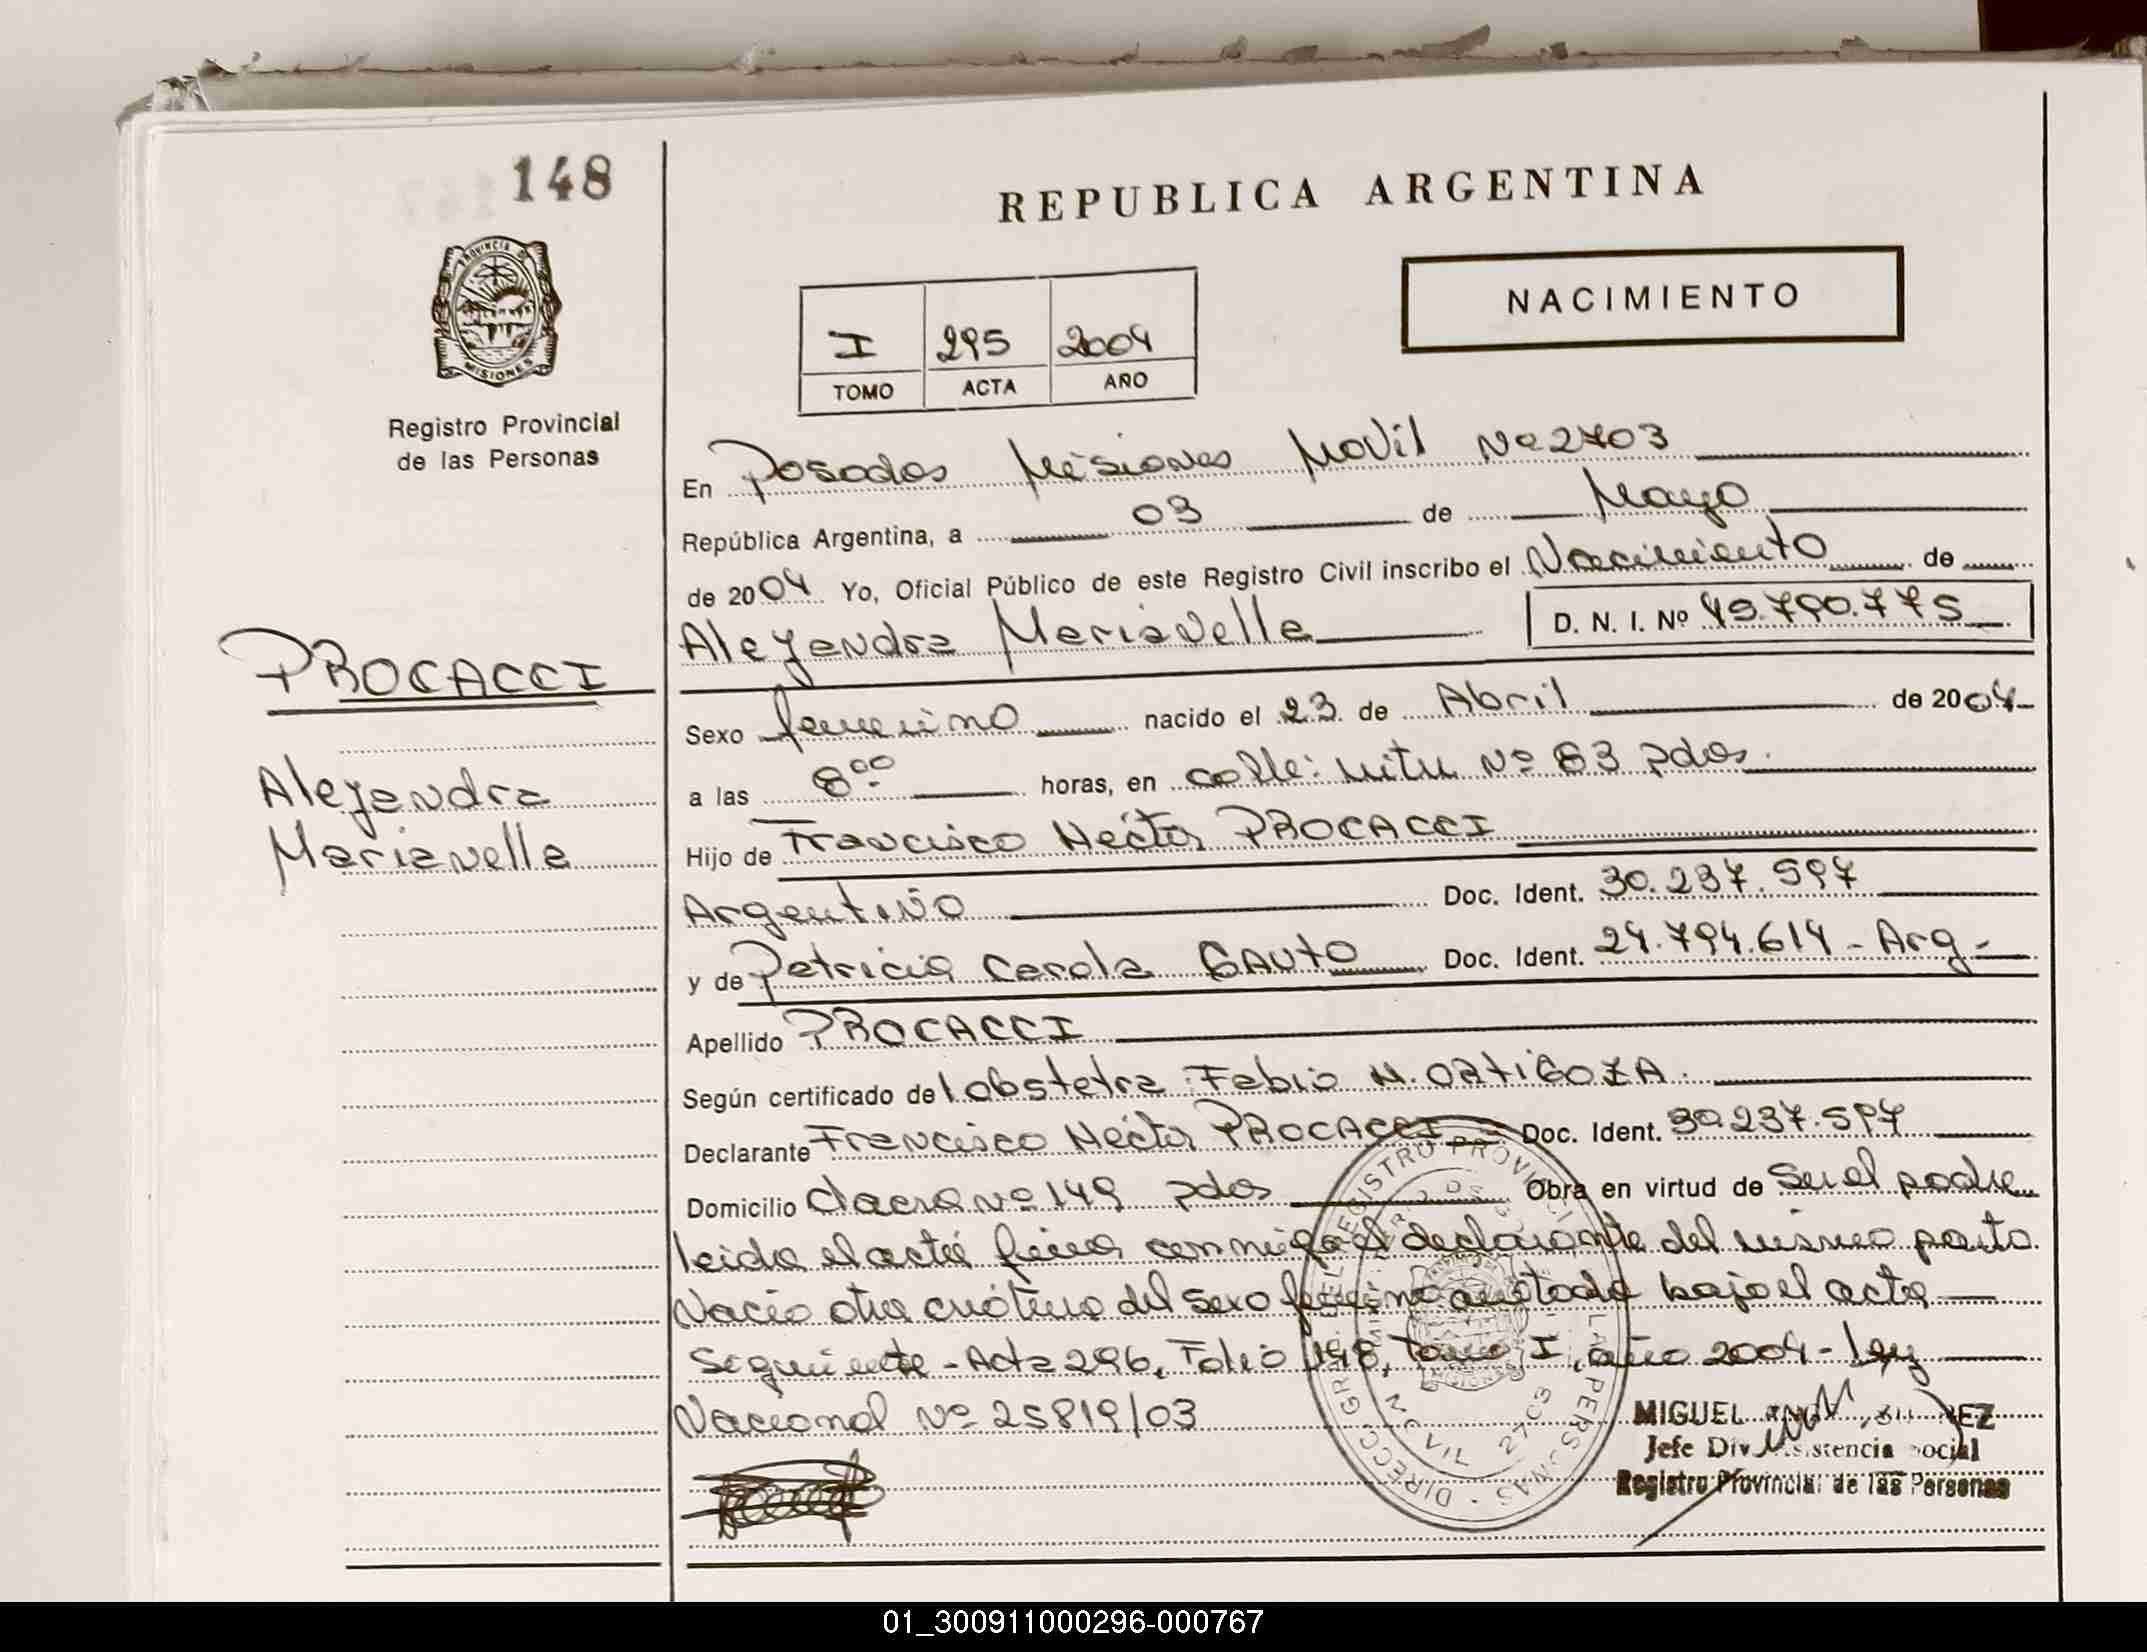 148
PROVINCIA DE
MISIONES
Registro Provincial
de las Personas
PROCACCI
Alejandra
Marianella
REPUBLICA ARGENTINA
NACIMIENTO
I 295 2004
TOMO ACTA AÑO
En Posadas Misiones Movil Nº 2703
República Argentina, a 03 de Mayo
de 2004 Yo, Oficial Público de este Registro Civil inscribo el Nacimiento de
Alejandra Marianella D. N. I. Nº 45.790.775
Sexo femenino nacido el 23 de Abril de 2004
a las 8⁰⁰ horas, en calle: Nº 83 pdas.
Hijo de Francisco Héctor PROCACCI
Argentino Doc. Ident. 30.237.597
y de Patricia Carola GAUTO Doc. Ident. 24.794.614 - Arg -
Apellido PROCACCI
Según certificado de obstetra: Fabio N. ORTIGOZA.
Declarante Francisco Héctor PROCACCI Doc. Ident. 30.237.597
Domicilio chacra Nº 149 pdas Obra en virtud de Ser el padre
leida el acta firma conmigo el declarante del mismo parto
Nacio otra criatura del sexo femenino anotada bajo el acta
Seguiente - Acta 296, Folio 148, tomo I, año 2004 - Ley
Nacional Nº 25819/03
MIGUEL
Jefe Div. Asistencia Social
Registro Provincial de las Personas
01_300911000296-000767